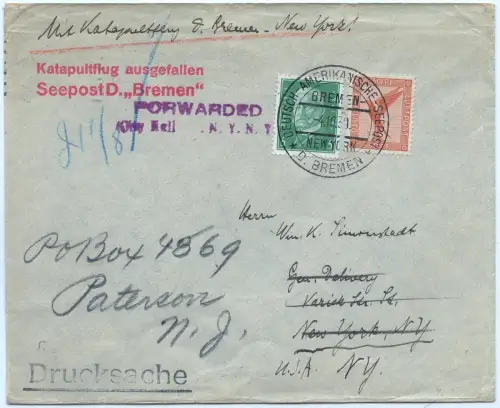 Mit Katapultflug D. Bremen - New York!
Katapultflug ausgefallen
Seepost D. „Bremen"
FORWARDED
N.Y. N.Y.
DEUTSCH-AMERIKANISCHE SEEPOST
BREMEN-
NEW YORK
D. BREMEN
Herrn
Wm. K. Simonstedt
Gen. Delivery
Varick Str. St.
New York, NY
U.S.A. NY.
PO Box 4869
Paterson
N. J.
Drucksache